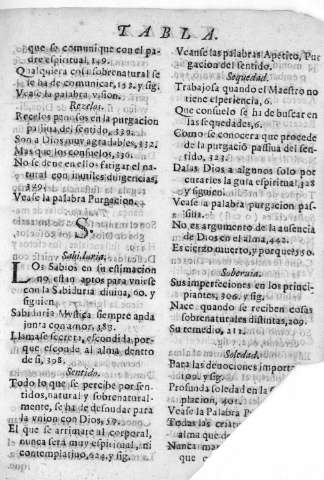 TABLA.
que se comunique con el pa-
dre espiritual, 149.
Qualquiera cosa sobrenatural se
le ha de comunicar, 152. y sig.
Vease la palabra vision.
Rezelos.
Rezelos penosos en la purgacion
passiua del sentido, 339.
Son a Dios muy agradables, 132.
Mas que los consuelos, 136.
No se deue en ellos fatigar el na-
tural con inutiles diligencias,
Vease la palabra Purgacion.
S.
Sabiduria.
LOs Sabios en su estimacion
no estan aptos para vnirse
con la Sabiduria diuina, 60. y
siguien.
Sabiduria Mystica siempre anda
junta con amor, 383.
Llamase secreta, escondida, por-
que esconde al alma dentro
de si, 398.
Sentido.
Todo lo que se percibe por sen-
tidos, natural y sobrenatural-
mente, se ha de desnudar para
la vnion con Dios, 57.
El que se arrimare al corporal,
nunca serà muy espiritual, ni
contemplatiuo, 224. y sig.
Veanse las palabras Apetito, Pur
gacion del sentido.
Sequedad.
Trabajosa quando el Maestro no
tiene experiencia, 6.
Que consuelo se ha de buscar en
las sequedades, 6.
Como se conocerà que procede
de la purgaciõ passiua del sen-
tido, 323.
Dalas Dios a algunos solo por
quitarles la guia espiritual, 328
y siguien.
Vease la palabra purgacion pas-
siua.
No es argumento de la ausencia
de Dios en el alma, 442.
Es cierzo muerto, y porque, 550.
Soberuia.
Sus imperfecciones en los princi-
piantes, 306. y sig.
Nace quando se reciben cosas
sobrenaturales distintas, 209.
Su remedio, 211.
Soledad.
Para las deuociones importa
100. y sig.
Profunda soledad en la
placion, 401.
Vease la Palabra
Todas las
alma que
Nunca
que